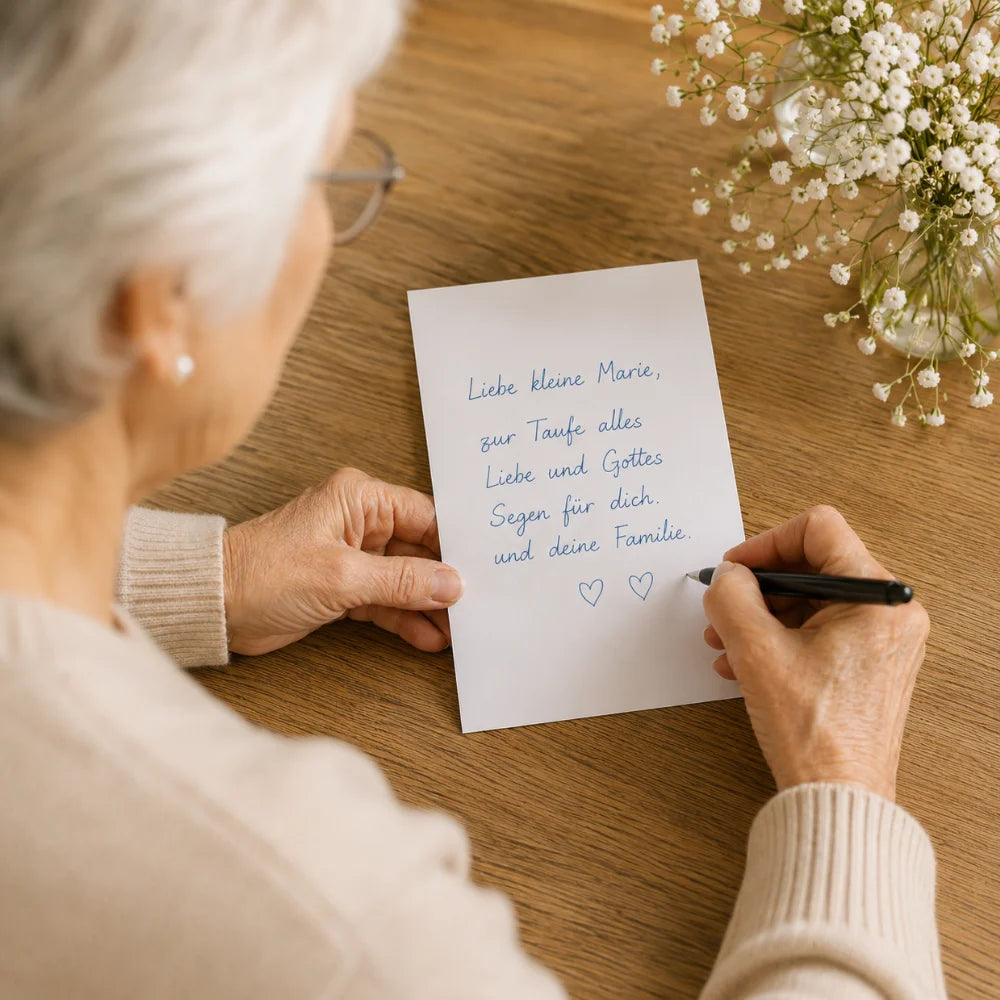 Liebe kleine Marie,
zur Taufe alles
Liebe und Gottes
Segen für dich.
und deine Familie.